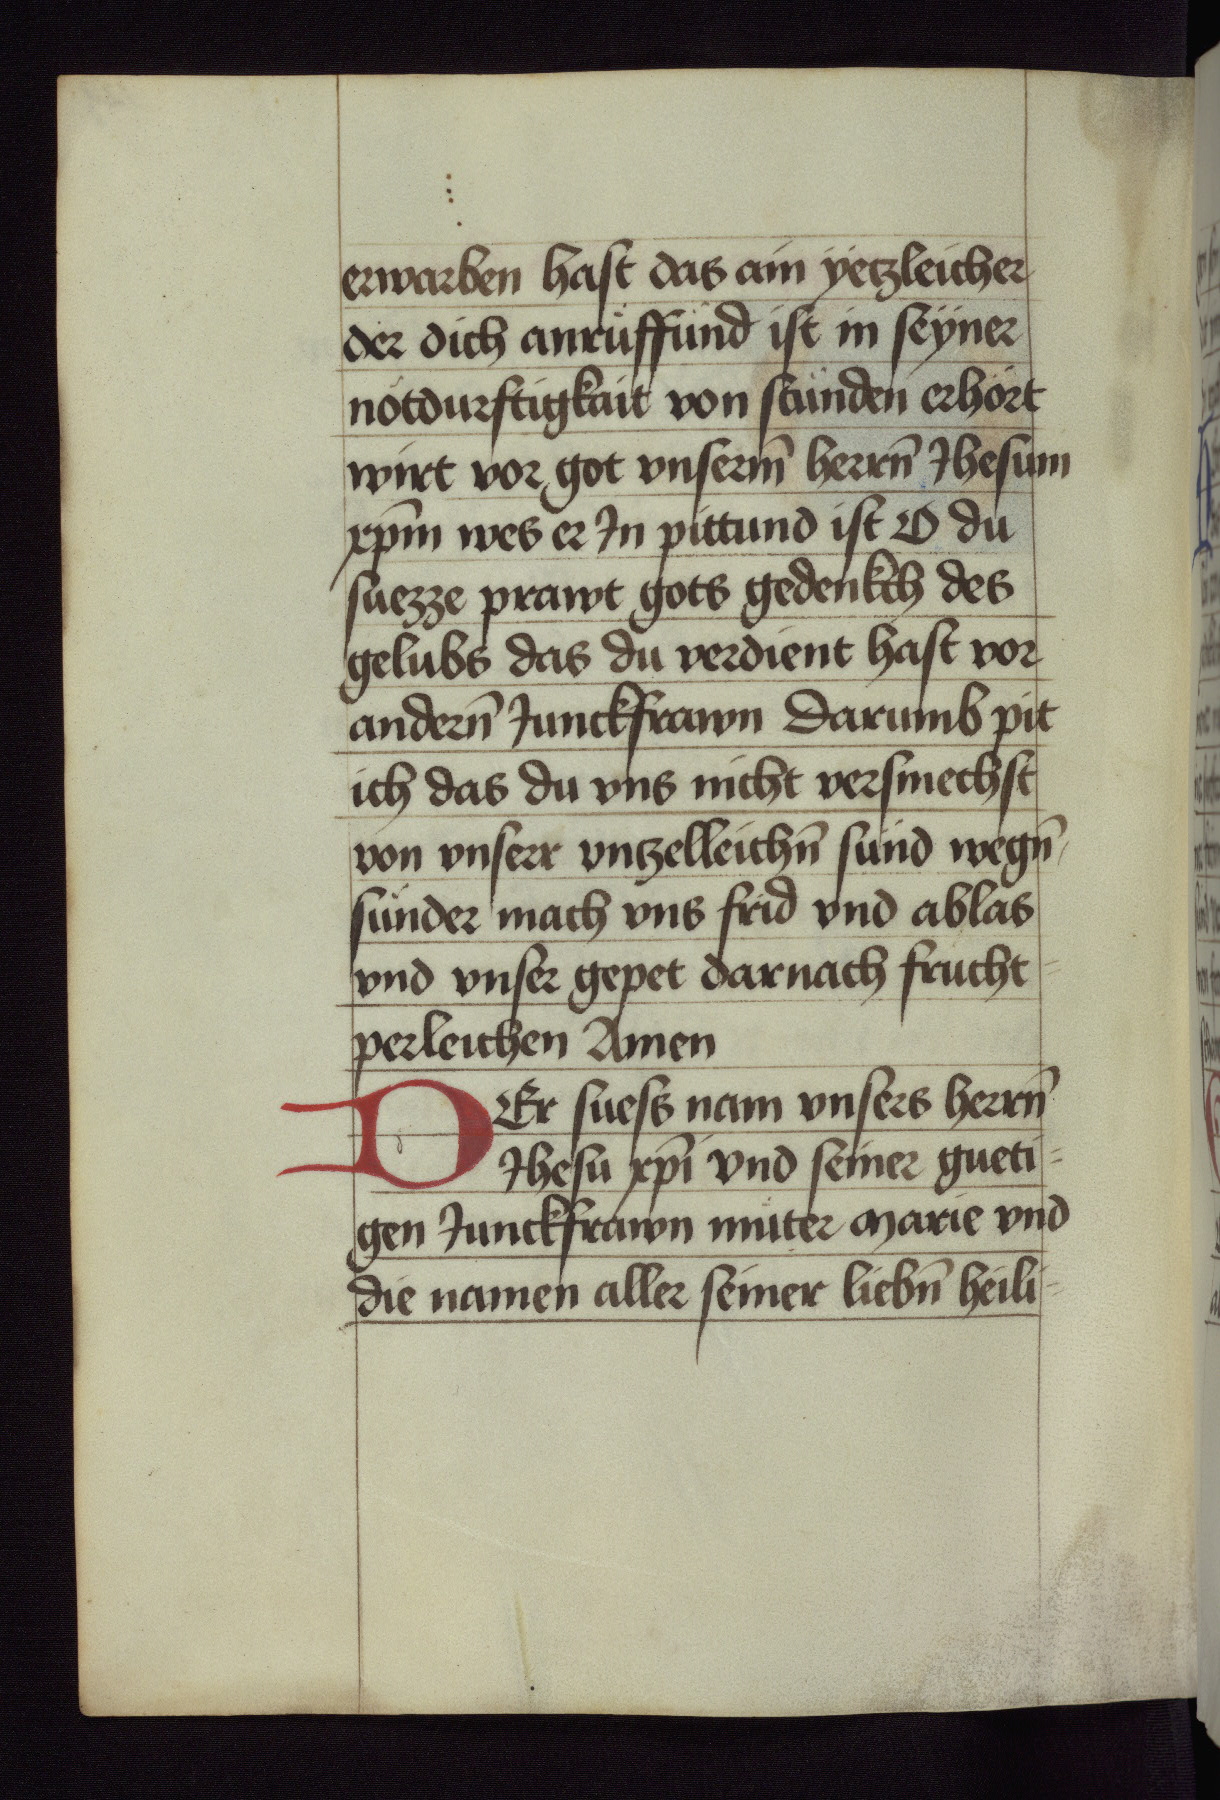 erwarben hast das ain yetzleicher
der dich anruͤffund ist in seyner
notdurftigkait von stunden erhort
wirt vor got vnserm̄ herrn̄ Jhesum
xp̄m wes er Jn pittund ist O du
suezze prawt gots gedenkch des
gelubs das du verdient hast vor
andern̄ Junckfrawn Darumb pit
ich das du vns nicht versmechst
von vnserr vntzelleichn̄ sund wegn̄
sunder mach vns frid vnd ablas
vnd vnser gepet darnach frucht=
perleichen Amen
DEr suess nam vnsers herrn̄
Jhesu xp̄i vnd seiner gueti=
gen Junckfrawn muter marie vnd
die namen aller seiner liebn̄ heili=